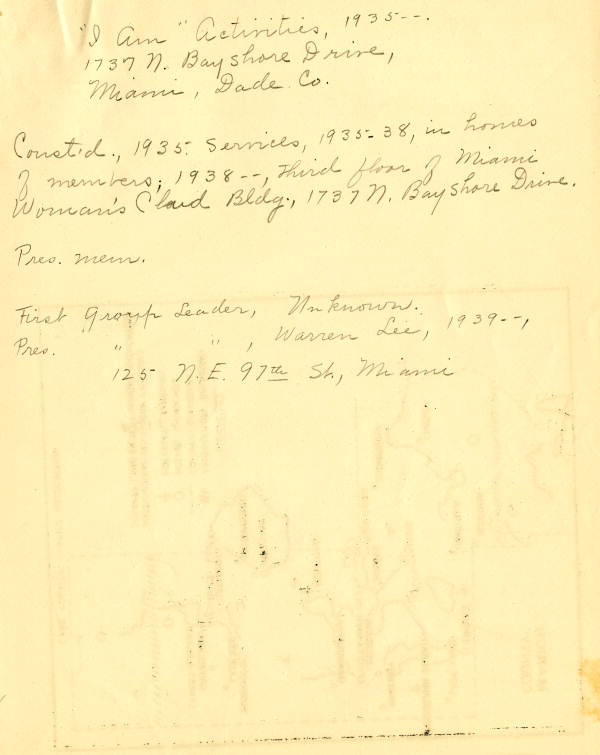 "I Am" Activities, 1935--.
1737 N. Bayshore Drive,
Miami, Dade Co.
Const'd., 1935. Services, 1935-38, in homes
of members; 1938--, third floor of Miami
Woman's Club Bldg., 1737 N. Bayshore Drive.
Pres. mem.
First Group Leader, Unknown.
Pres. " " , Warren Lee, 1939--,
125 N.E. 97th St., Miami